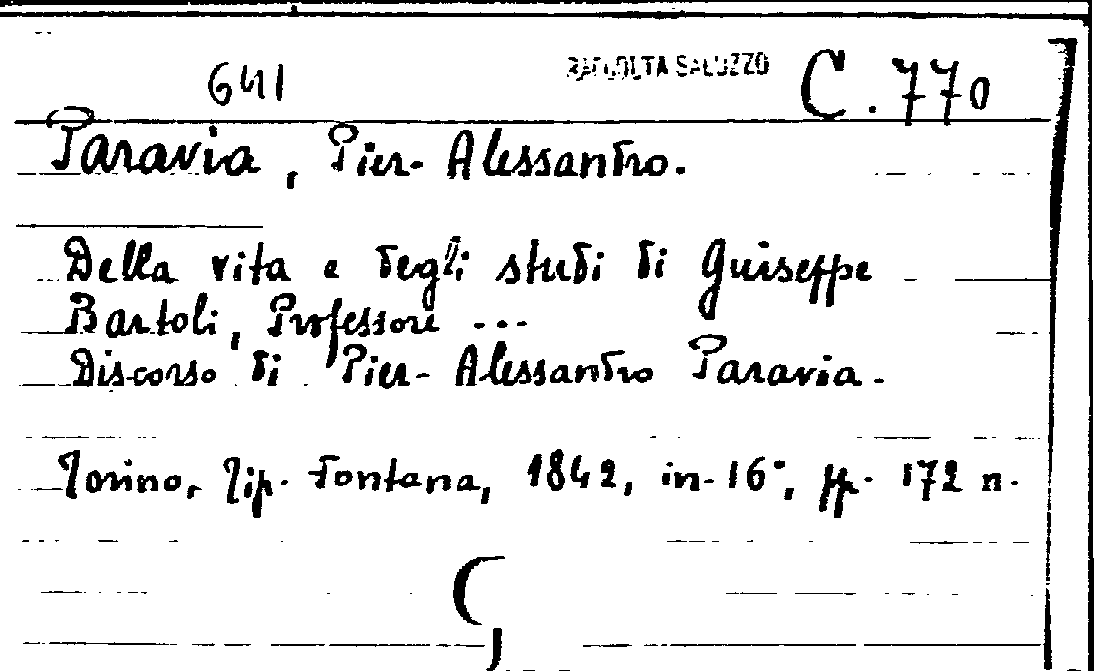 641 RACCOLTA SALUZZO C. 770
Paravia, Pier-Alessandro.
Della vita e degli studi di Guiseppe
Bartoli, Professore ...
Discorso di Pier-Alessandro Paravia.
Torino, Tip. Fontana, 1842, in-16°, pp. 172 n.